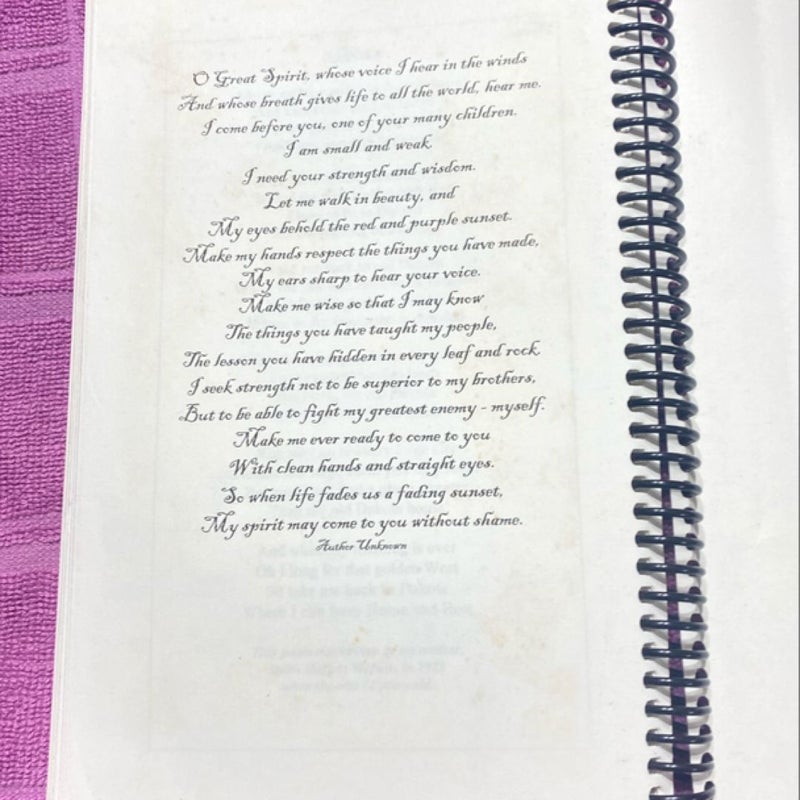 O Great Spirit, whose voice I hear in the winds
And whose breath gives life to all the world, hear me.
I come before you, one of your many children.
I am small and weak
I need your strength and wisdom.
Let me walk in beauty, and
My eyes behold the red and purple sunset.
Make my hands respect the things you have made,
My ears sharp to hear your voice.
Make me wise so that I may know
The things you have taught my people,
The lesson you have hidden in every leaf and rock
I seek strength not to be superior to my brothers,
But to be able to fight my greatest enemy - myself.
Make me ever ready to come to you
With clean hands and straight eyes.
So when life fades us a fading sunset,
My spirit may come to you without shame.
Author Unknown
is over
Oh I long for that golden West